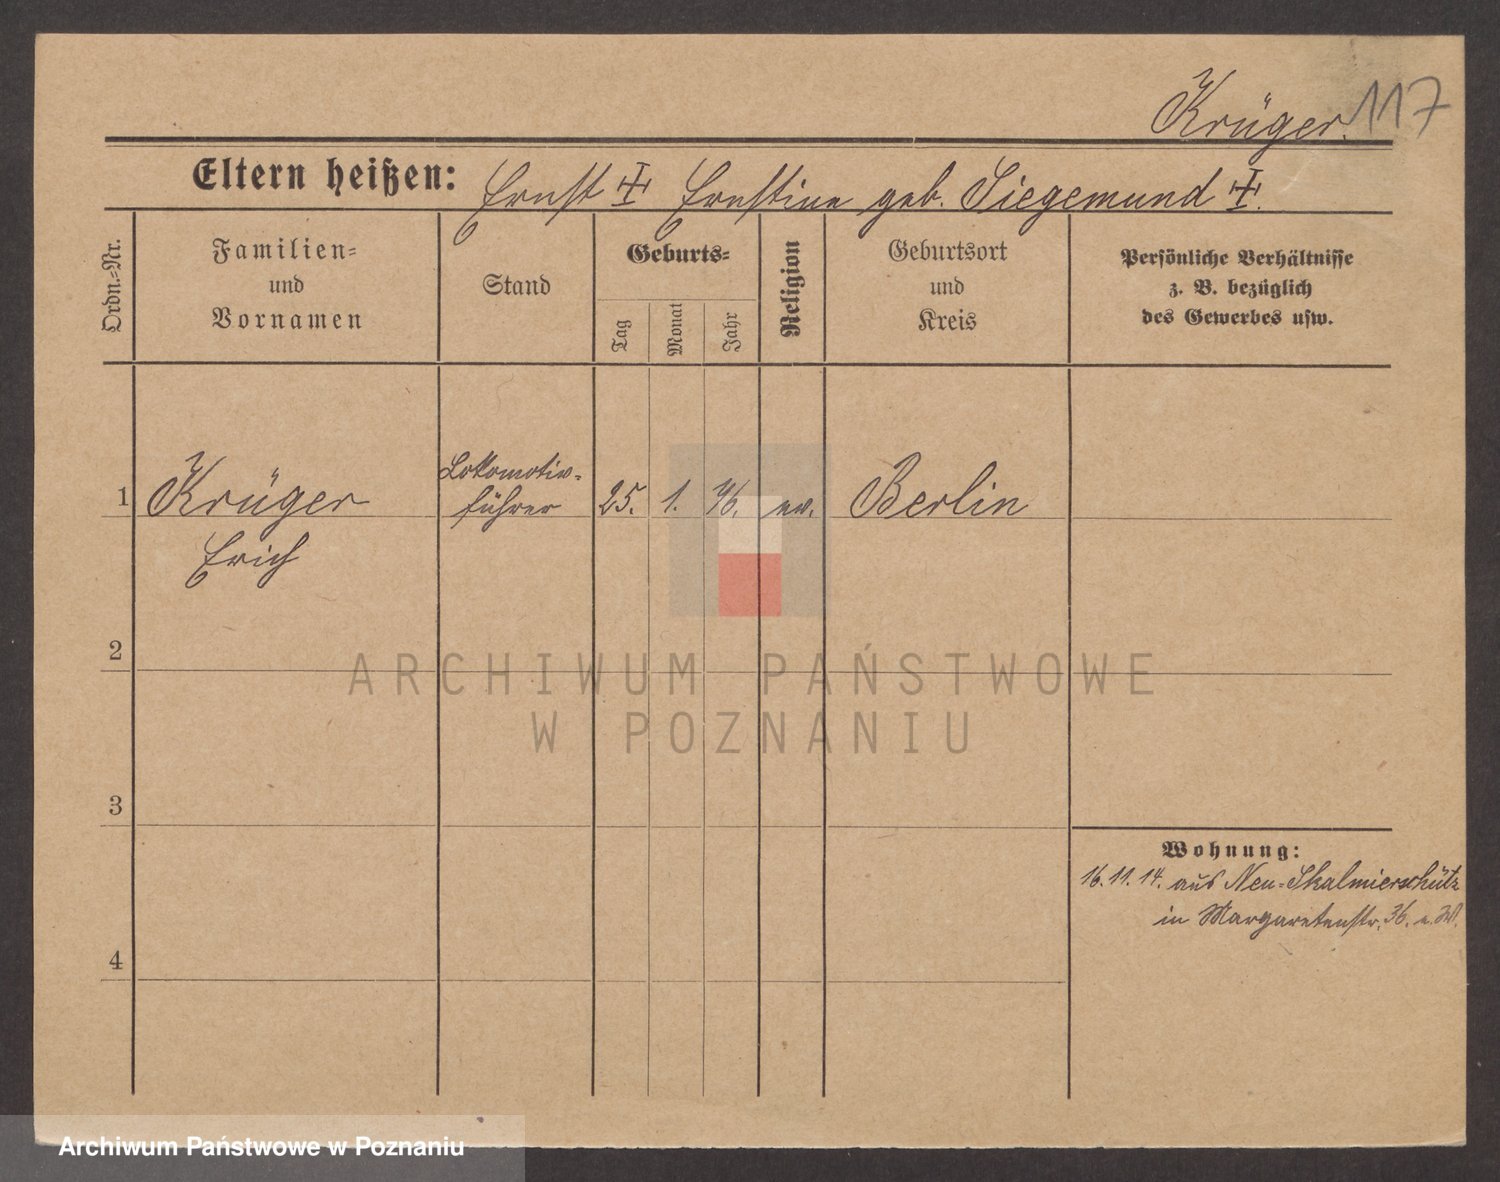 Krüger. 117
Eltern heißen: Ernst ✝ Ernstine geb. Siegemund ✝.
Ordn.-Nr.
Familien-
und
Vornamen
Stand
Geburts-
Tag
Monat
Jahr
Religion
Geburtsort
und
Kreis
Persönliche Verhältnisse
z. B. bezüglich
des Gewerbes usw.
Lokomotiv-
1 Krüger führer 25. 1. 76. ev. Berlin
Erich
2
ARCHIWUM PAŃSTWOWE
W POZNANIU
3
Wohnung:
16.11.14. aus Neu-Skalmierschütz
in Margaretenstr. 36.
4
Archiwum Państwowe w Poznaniu